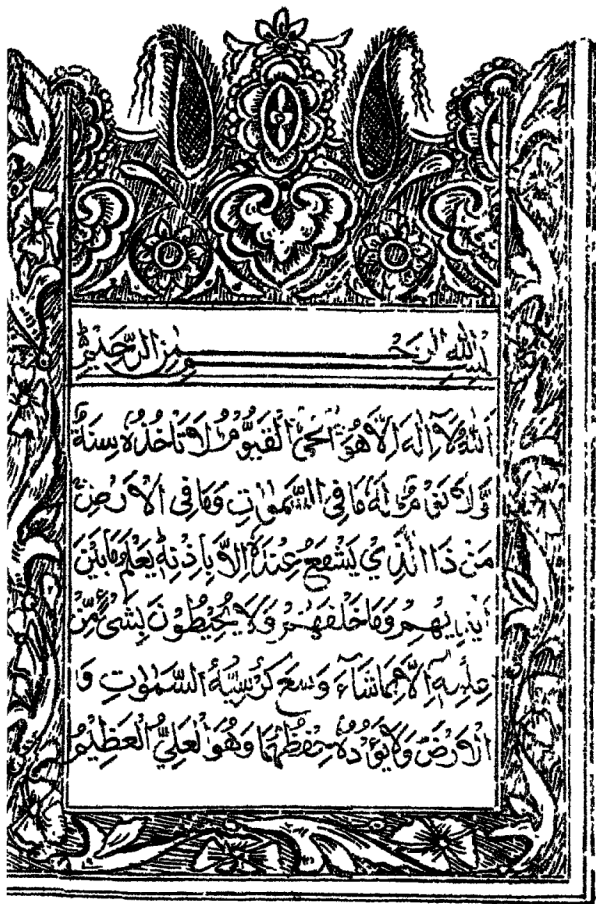 بسم الله الرحمن الرحيم
اَللّٰهُ لَاۤ اِلٰهَ اِلَّا هُوَ الْحَيُّ الْقَيُّوْمُ لَا تَاْخُذُهٗ سِنَةٌ
وَّلَا نَوْمٌ لَهٗ مَا فِي السَّمٰوٰتِ وَمَا فِي الْاَرْضِ
مَنْ ذَا الَّذِيْ يَشْفَعُ عِنْدَهٗ اِلَّا بِاِذْنِهٖ يَعْلَمُ مَا بَيْنَ
اَيْدِيْهِمْ وَمَا خَلْفَهُمْ وَلَا يُحِيْطُوْنَ بِشَيْءٍ مِّنْ
عِلْمِهٖ اِلَّا بِمَا شَآءَ وَسِعَ كُرْسِيُّهُ السَّمٰوٰتِ وَ
الْاَرْضَ وَلَا يَؤُدُهٗ حِفْظُهُمَا وَهُوَ الْعَلِيُّ الْعَظِيْمُ